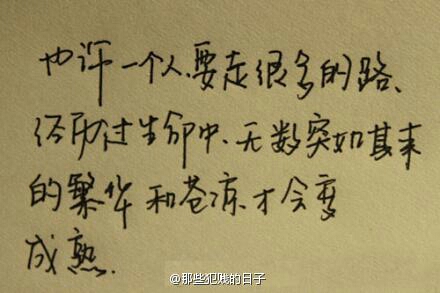 也许一个人、要走很多的路、
经历过生命中、无数突如其来
的繁华和苍凉.才会变
成熟.
@那些犯贱的日子